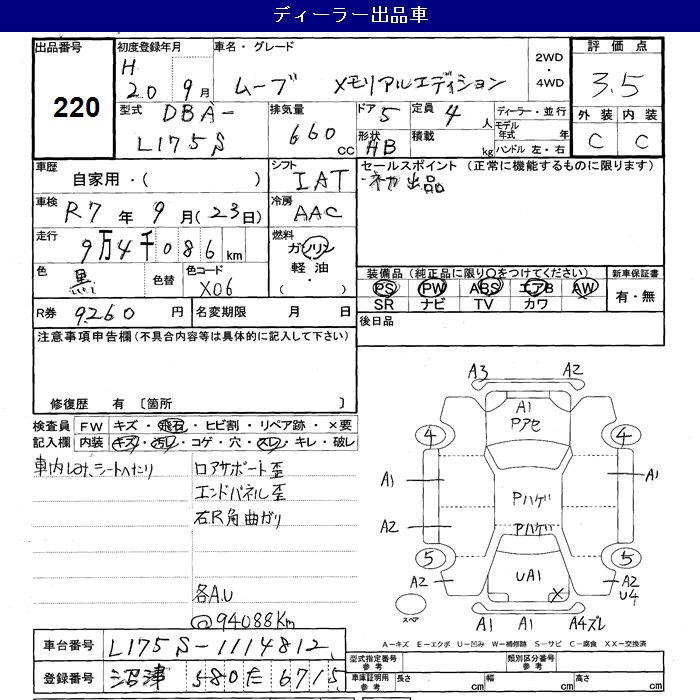 ディーラー出品車
出品番号 220
初度登録年月 H 20 9月
車名・グレード ムーブ メモリアルエディション
2WD・4WD
評価点 3.5
型式 DBA- L175S
排気量 660 cc
ドア 5
形状 HB
定員 4 人
積載 kg
ディーラー・並行
モデル年式 年
ハンドル 左・右
外装 C
内装 C
車歴 自家用・( )
シフト IAT
セールスポイント (正常に機能するものに限ります)
車検 R7年 9月 (23日)
冷房 AAC
走行 9万4千086km
燃料 ガソリン 軽油・
色 黒
色替
色コード X06
装備品 (純正品に限り○をつけてください)
PS PW ABS エアB AW
SR ナビ TV カワ
新車保証書 有・無
R券 9260円
名変期限 月 日
後日品
注意事項申告欄(不具合内容等は具体的に記入して下さい)
修復歴 有 〔箇所 〕
検査員記入欄
FW キズ・飛石・ヒビ割・リペア跡・×要
内装 キズ・汚れ・コゲ・穴・スレ・キレ・破レ
車内しみ、シートへたり
ロアサポート歪
エンドパネル歪
右R角曲がり
各A.U
@94088Km
A3 A2
A1
Pアセ
4 4
A1 A1
Pハゲ
A2
Pハゲ
5 5
A2
UA1
×
A2
U4
スペア
A1 A1 A4ズレ
A－キズ E－エクボ U－凹み W－補修跡 S－サビ C－腐食 XX－交換済
車台番号 L175S-1114812
登録番号 沼津 580 た 6715
型式指定番号 参考
類別区分番号 参考
車庫証明用 参考 長さ cm 幅 cm 高さ cm